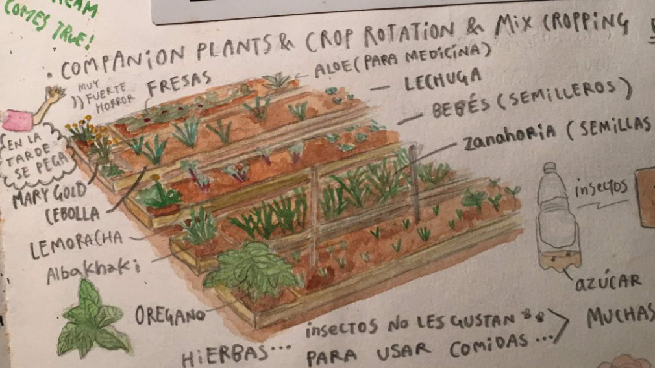 COMES TRUE!
COMPANION PLANTS & CROP ROTATION & MIX CROPPING
MUY
)) FUERTE
HORROR
FRESAS
ALOE (PARA MEDICINA)
LECHUGA
BEBÉS (SEMILLEROS)
ZANAHORIA (SEMILLAS
EN LA
TARDE
SE PEGA
MARY GOLD
CEBOLLA
LEMORACHA
Albakhaki
OREGANO
insectos
AZÚCAR
HIERBAS... insectos NO LES GUSTAN
PARA USAR COMIDAS...
MUCHAS